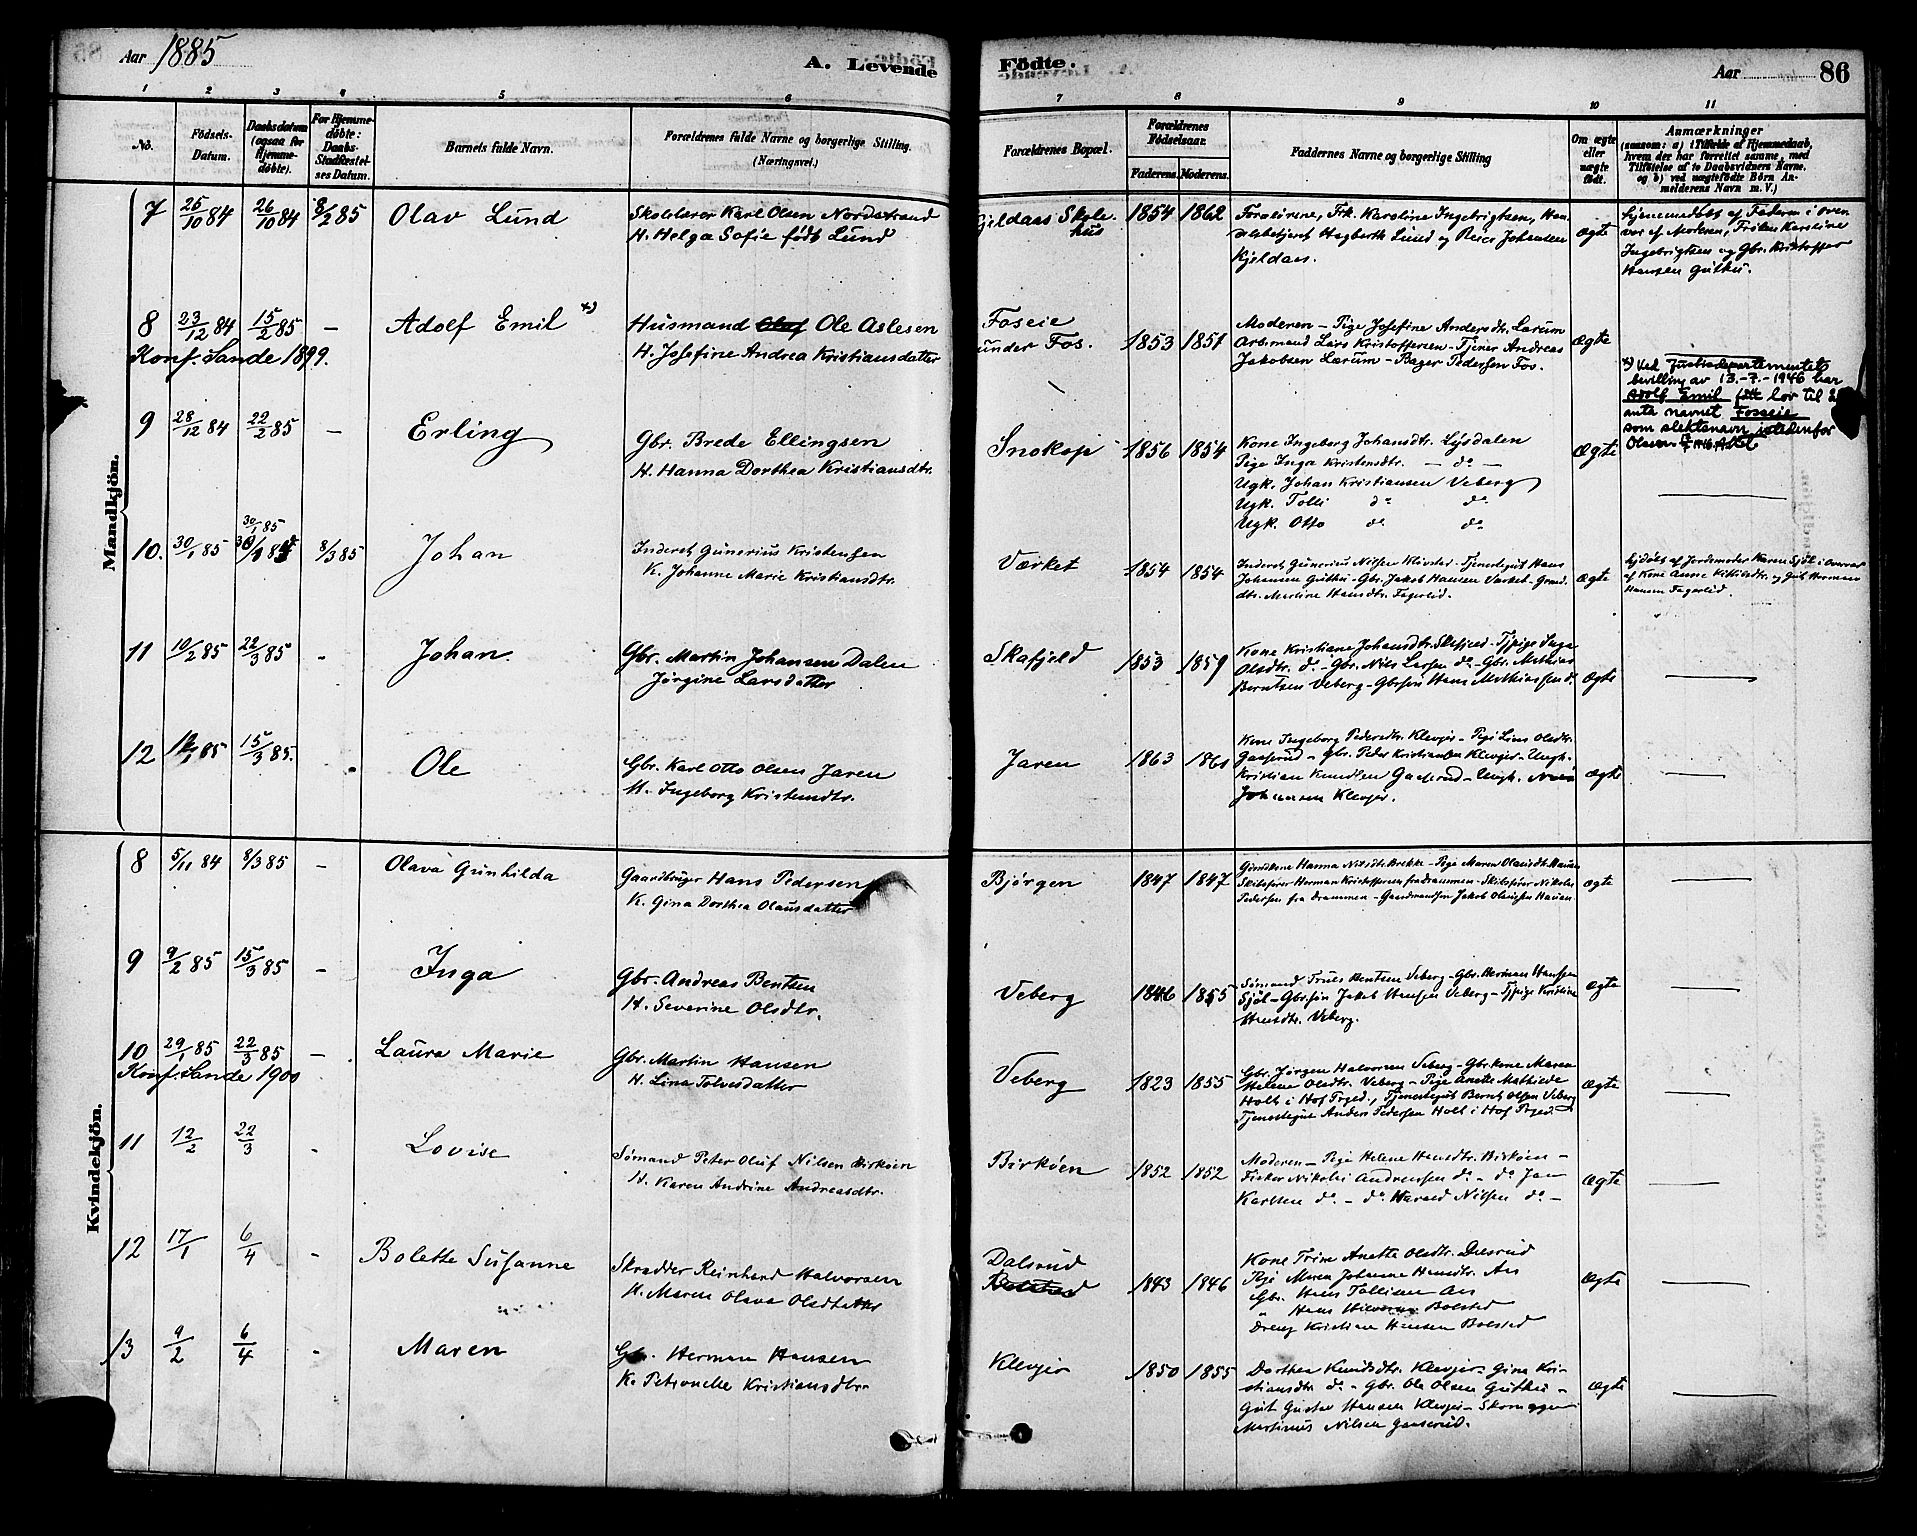 Aar 1885
A. Levende
Födte.
Aar 86
1 2 3 4 5 6 7 8 9 10 11
No.
Födsels-Datum.
Daabsdatum (ogsaa for Hjemme-döbte).
For Hjemme-döbte: Daabs-Stadfæstel-ses Datum.
Barnets fulde Navn.
Forældrenes fulde Navne og borgerlige Stilling. (Næringsvei.)
Forældrenes Bopæl.
Forældrenes Födselsaar.
Faderens. Moderens.
Faddernes Navne og borgerlige Stilling
Om ægte eller uægte födt.
Anmærkninger
(saasom: a) i Tilfælde af Hjemmedaab, hvem der har forrettet samme, med Tilföielse af to Daabsvidners Navne, og b) ved uægtefödte Börn An-melderens Navn m. V.)
Mandkjön.
7 25/10 84 26/10 84 8/2 85 Olav Lund
Skolelærer Karl Olsen Nordstrand
H. Helga Sofie født Lund
Kjeldaas Skole-
hus
1854 1862
Forældrene, Frk. Karoline Ingebrigtsen, Han-
delsbetjent Hagbarth Lund og Johansen
Kjeldaas.
ægte
Hjemmedøbt af Faderen i over-
vær af Moderen, Frøken Karoline
Ingebrigtsen og Gbr. Kristoffer
Hansen Guthu.
8 23/12 84 15/2 85 – Adolf Emil x)
Konf. Sande 1899.
Husmand Olaf Ole Aslesen
H. Josefine Andrea Kristiansdatter
Foseie
under Fos.
1853 1857
Moderen – Pige Josefine Andersdtr. Lærum
Arbmand Lars Kristoffersen – Tjener Andreas
Jakobsen Lærum – Bager Pedersen Fos.
ægte
x) Ved Justisdepartementets
bevilling av 13.-7.-1946 har
Adolf Emil fått lov til å
anta navnet Foseie
som slektsnavn istedenfor
Olsen.
9 28/12 84 22/2 85 – Erling
Gbr. Brede Ellingsen
H. Hanna Dorthea Kristiansdtr.
Snekop 1856 1854
Kone Ingeborg Johansdtr. Lysdalen
Pige Inga Kristensdtr. – do –
Ugk. Johan Kristiansen Veberg
Ugk. Tolli do do
Ugk. Otto do do
ægte
10. 30/1 85 30/1 85 8/3 85 Johan
Inderst Gunerius Kristensen
K. Johanne Marie Kristiansdtr.
Værket 1854 1854
Inderst Gunerius Nilsen – Tjenestegut Hans
Johansen Guthu – Gbr. Jakob Hansen Værket – Grmd.
dtr. Marline Hansdtr. Fagerlid.
ægte
Hjdøbt af Jordemoder Karen Sjöl i overvær
af Kone Anne Kittilsdtr. og Gut Herman
Hansen Fagerlid.
11 10/2 85 22/3 85 – Johan.
Gbr. Martin Johansen Dalen
Jørgine Larsdatter
Skafjeld 1853 1859
Kone Kristiane Johansdtr. Skafjeld – Tjpige Inga
Olsdtr. do – Gbr. Nils Larsen do – Gbr. Mathias
Berntsen Veberg – Gbrsøn Hans Mathiassen do
ægte
12 85 15/3 85. Ole
Gbr. Karl Otto Olsen Jaren
H. Ingeborg Kristensdtr.
Jaren 1863 1861
Kone Ingeborg Pedersdtr. Klevjer – Pige Lina Olsdtr.
Gaaserud – Gbr. Peder Kristiansen Klevjer – Ungk.
Kristian Knudsen Gaaserud – Ungk.
Johannsen Klevjer.
ægte
Kvindekjön.
8 5/11 84 8/3 85 – Olava Gunhilda
Gaardbruger Hans Pedersen
K. Gina Dorthea Olausdatter
Bjørgen 1847 1847
Grmdskone Hanna Nilsdtr. Brekke – Pige Maren Olausdtr. Hauan
Skibsfører Herman Kristoffersen fra Drammen – Skibsfører Nikolai
Pedersen fra Drammen – Gaardmandssøn Jakob Olaussen Hauan
ægte
9 9/2 85 15/3 85 – Inga
Gbr. Andreas Bentsen
H. Severine Olsdtr.
Veberg 1846 1855
Sømand Truls Bentsen Veberg – Gbr. Herman Hansen
Sjöl – Gbrsøn Jakob Hansen Veberg – Tjpige Kristine
Hansdtr. Veberg.
ægte
10 29/1 85 22/3 85 – Laura Marie
Konf. Sande 1900
Gbr. Martin Hansen
H. Lina Tolvesdatter
Veberg 1823 1855
Gbr. Jörgen Halvorsen Veberg – Gbrkone Maren
Helene Olsdtr. Veberg – Pige Anette Mathisdtr.
Holt i Hof Prgjd., Tjenestegut Bernt Olsen Veberg
Tjenestegut Anders Pedersen Holt i Hof Prgjd.
ægte
11 12/2 22/3 Lovise
Sømand Peter Oluf Nilsen Birköen
H. Karen Andrine Andreasdtr.
Birköen 1852 1852
Moderen – Pige Helene Hansdtr. Birköen –
Fisker Nikolai Andreassen do – do Jan
Karlsen do – do Harald Nilsen do –
ægte
12 17/1 6/4 – Bolette Susanne
Skrædder Reinhard Halvorsen
H. Maren Olava Olsdatter
Dalsrud
Bolstad
1843 1846
Kone Trine Anette Olsdtr. Dalsrud
Pige Maren Johanne Hansdtr. Aas
Gbr. Hans Tollissen Aas
Hans Halvorsen Bolstad
Dreng Kristian Hansen Bolstad
ægte
13 9/2 6/4 – Maren
Gbr. Herman Hansen
K. Petronelle Kristiansdtr.
Klevjer 1850 1855
Dorthea Knudsdtr. Klevjer – Gina Kri-
stiansdtr. do – Gbr. Ole Olsen Guthu –
Gut Gustav Hansen Klevjer – Skomager
Martinus Nilsen Gaaserud.
ægte